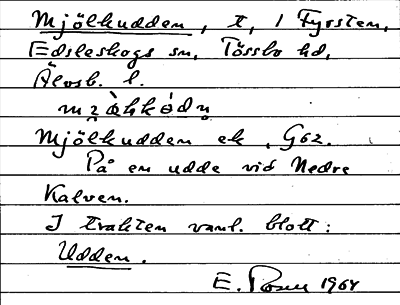 Mjölkudden, t, i Fyrsten,
Edsleskogs sn, Tössbo hd,
Älvsb. l.
Mjölkudden ek, G62.
På en udde vid Nedre
Kalven.
I trakten vanl. blott:
Udden.
E. 1964